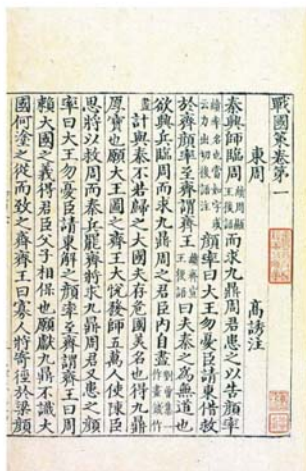 戰國策卷第一
東周 高誘注
秦興師臨周續周顯王後語而求九鼎周君患之以告顏率
續率名也當如字或云力出切後語注顏率曰大王勿憂臣請東借救
於齊顏率至齊謂齊王續齊宣王後語曰夫秦之爲無道也
欲興兵臨周而求九鼎周之君臣內自盡劉曾集一作畫作
畫計與秦不若歸之大國夫存危國美名也得九鼎
厚寶也願大王圖之齊王大悅發師五萬人使陳臣
思將以救周而秦兵罷齊將求九鼎周君又患之顏
率曰大王勿憂臣請東解之顏率至齊謂齊王曰周
賴大國之義得君臣父子相保也願獻九鼎不識大
國何塗之從而致之齊齊王曰寡人將寄徑於梁顏